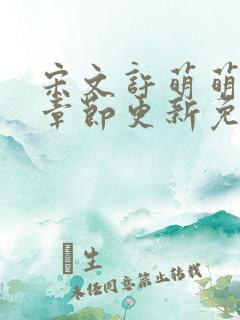 宋文許萌萌
章節更新免
生
未任同意禁止转载